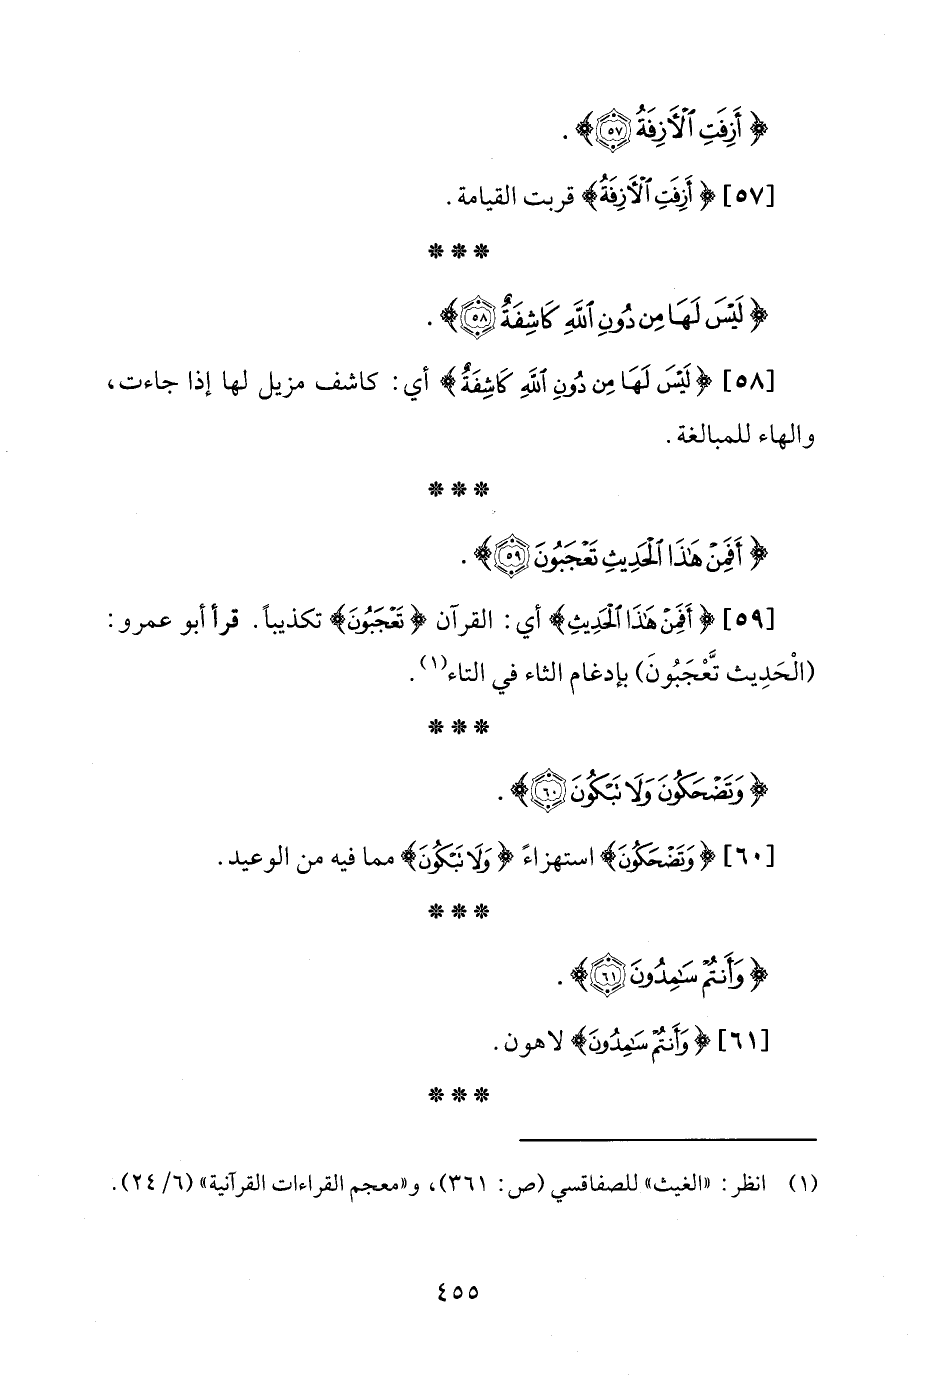 ﴿أَزِفَتِ ٱلْأَزِفَةُ ٥٧﴾ .
[٥٧] ﴿أَزِفَتِ ٱلْأَزِفَةُ﴾ قربت القيامة .
* * *
﴿لَيْسَ لَهَا مِن دُونِ ٱللَّهِ كَاشِفَةٌ ٥٨﴾ .
[٥٨] ﴿لَيْسَ لَهَا مِن دُونِ ٱللَّهِ كَاشِفَةٌ﴾ أي: كاشف مزيل لها إذا جاءت،
والهاء للمبالغة .
* * *
﴿أَفَمِنْ هَٰذَا ٱلْحَدِيثِ تَعْجَبُونَ ٥٩﴾ .
[٥٩] ﴿أَفَمِنْ هَٰذَا ٱلْحَدِيثِ﴾ أي: القرآن ﴿تَعْجَبُونَ﴾ تكذيباً. قرأ أبو عمرو:
(الْحَدِيث تَّعْجَبُونَ) بإدغام الثاء في التاء(١).
* * *
﴿وَتَضْحَكُونَ وَلَا تَبْكُونَ ٦٠﴾ .
[٦٠] ﴿وَتَضْحَكُونَ﴾ استهزاءً ﴿وَلَا تَبْكُونَ﴾ مما فيه من الوعيد.
* * *
﴿وَأَنتُمْ سَٰمِدُونَ ٦١﴾ .
[٦١] ﴿وَأَنتُمْ سَٰمِدُونَ﴾ لاهون.
* * *
(١) انظر: «الغيث» للصفاقسي (ص: ٣٦١)، و«معجم القراءات القرآنية» (٦/ ٢٤).
٤٥٥